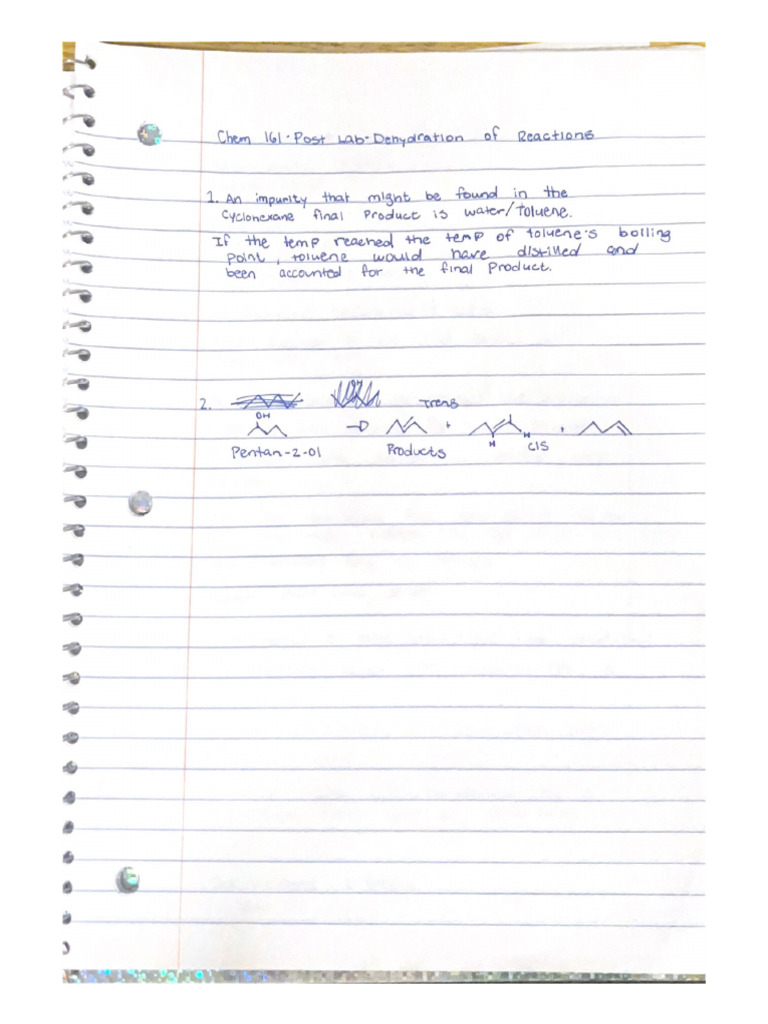 Chem 161 - Post Lab - Dehydration of Reactions
1. An impurity that might be found in the
cyclohexane final product is water/toluene.
If the temp reached the temp of toluene's boiling
point, toluene would have distilled and
been accounted for the final product.
2. Trans
OH
+ H H +
Pentan-2-ol Products cis